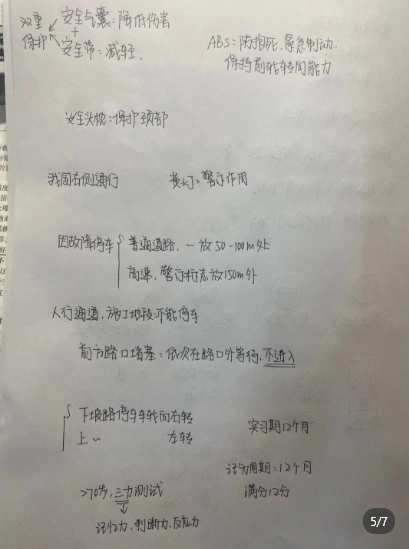 双重保护
安全气囊:降低伤害
+
安全带:减轻.
ABS:防抱死,紧急制动.
保持前轮转向能力
安全头枕:保护颈部
我国右侧通行
黄灯:警示作用
因故障停车
普通道路,一放50-100m处
高速,警示标志放150m外
人行通道,施工地段不能停车
前方路口堵塞:依次在路口外等待,不进入
下坡路停车车轮向右转
上〃 左转
实习期12个月
记分周期:12个月
满分12分
>70岁,三力测试
记忆力,判断力,反应力
5/7